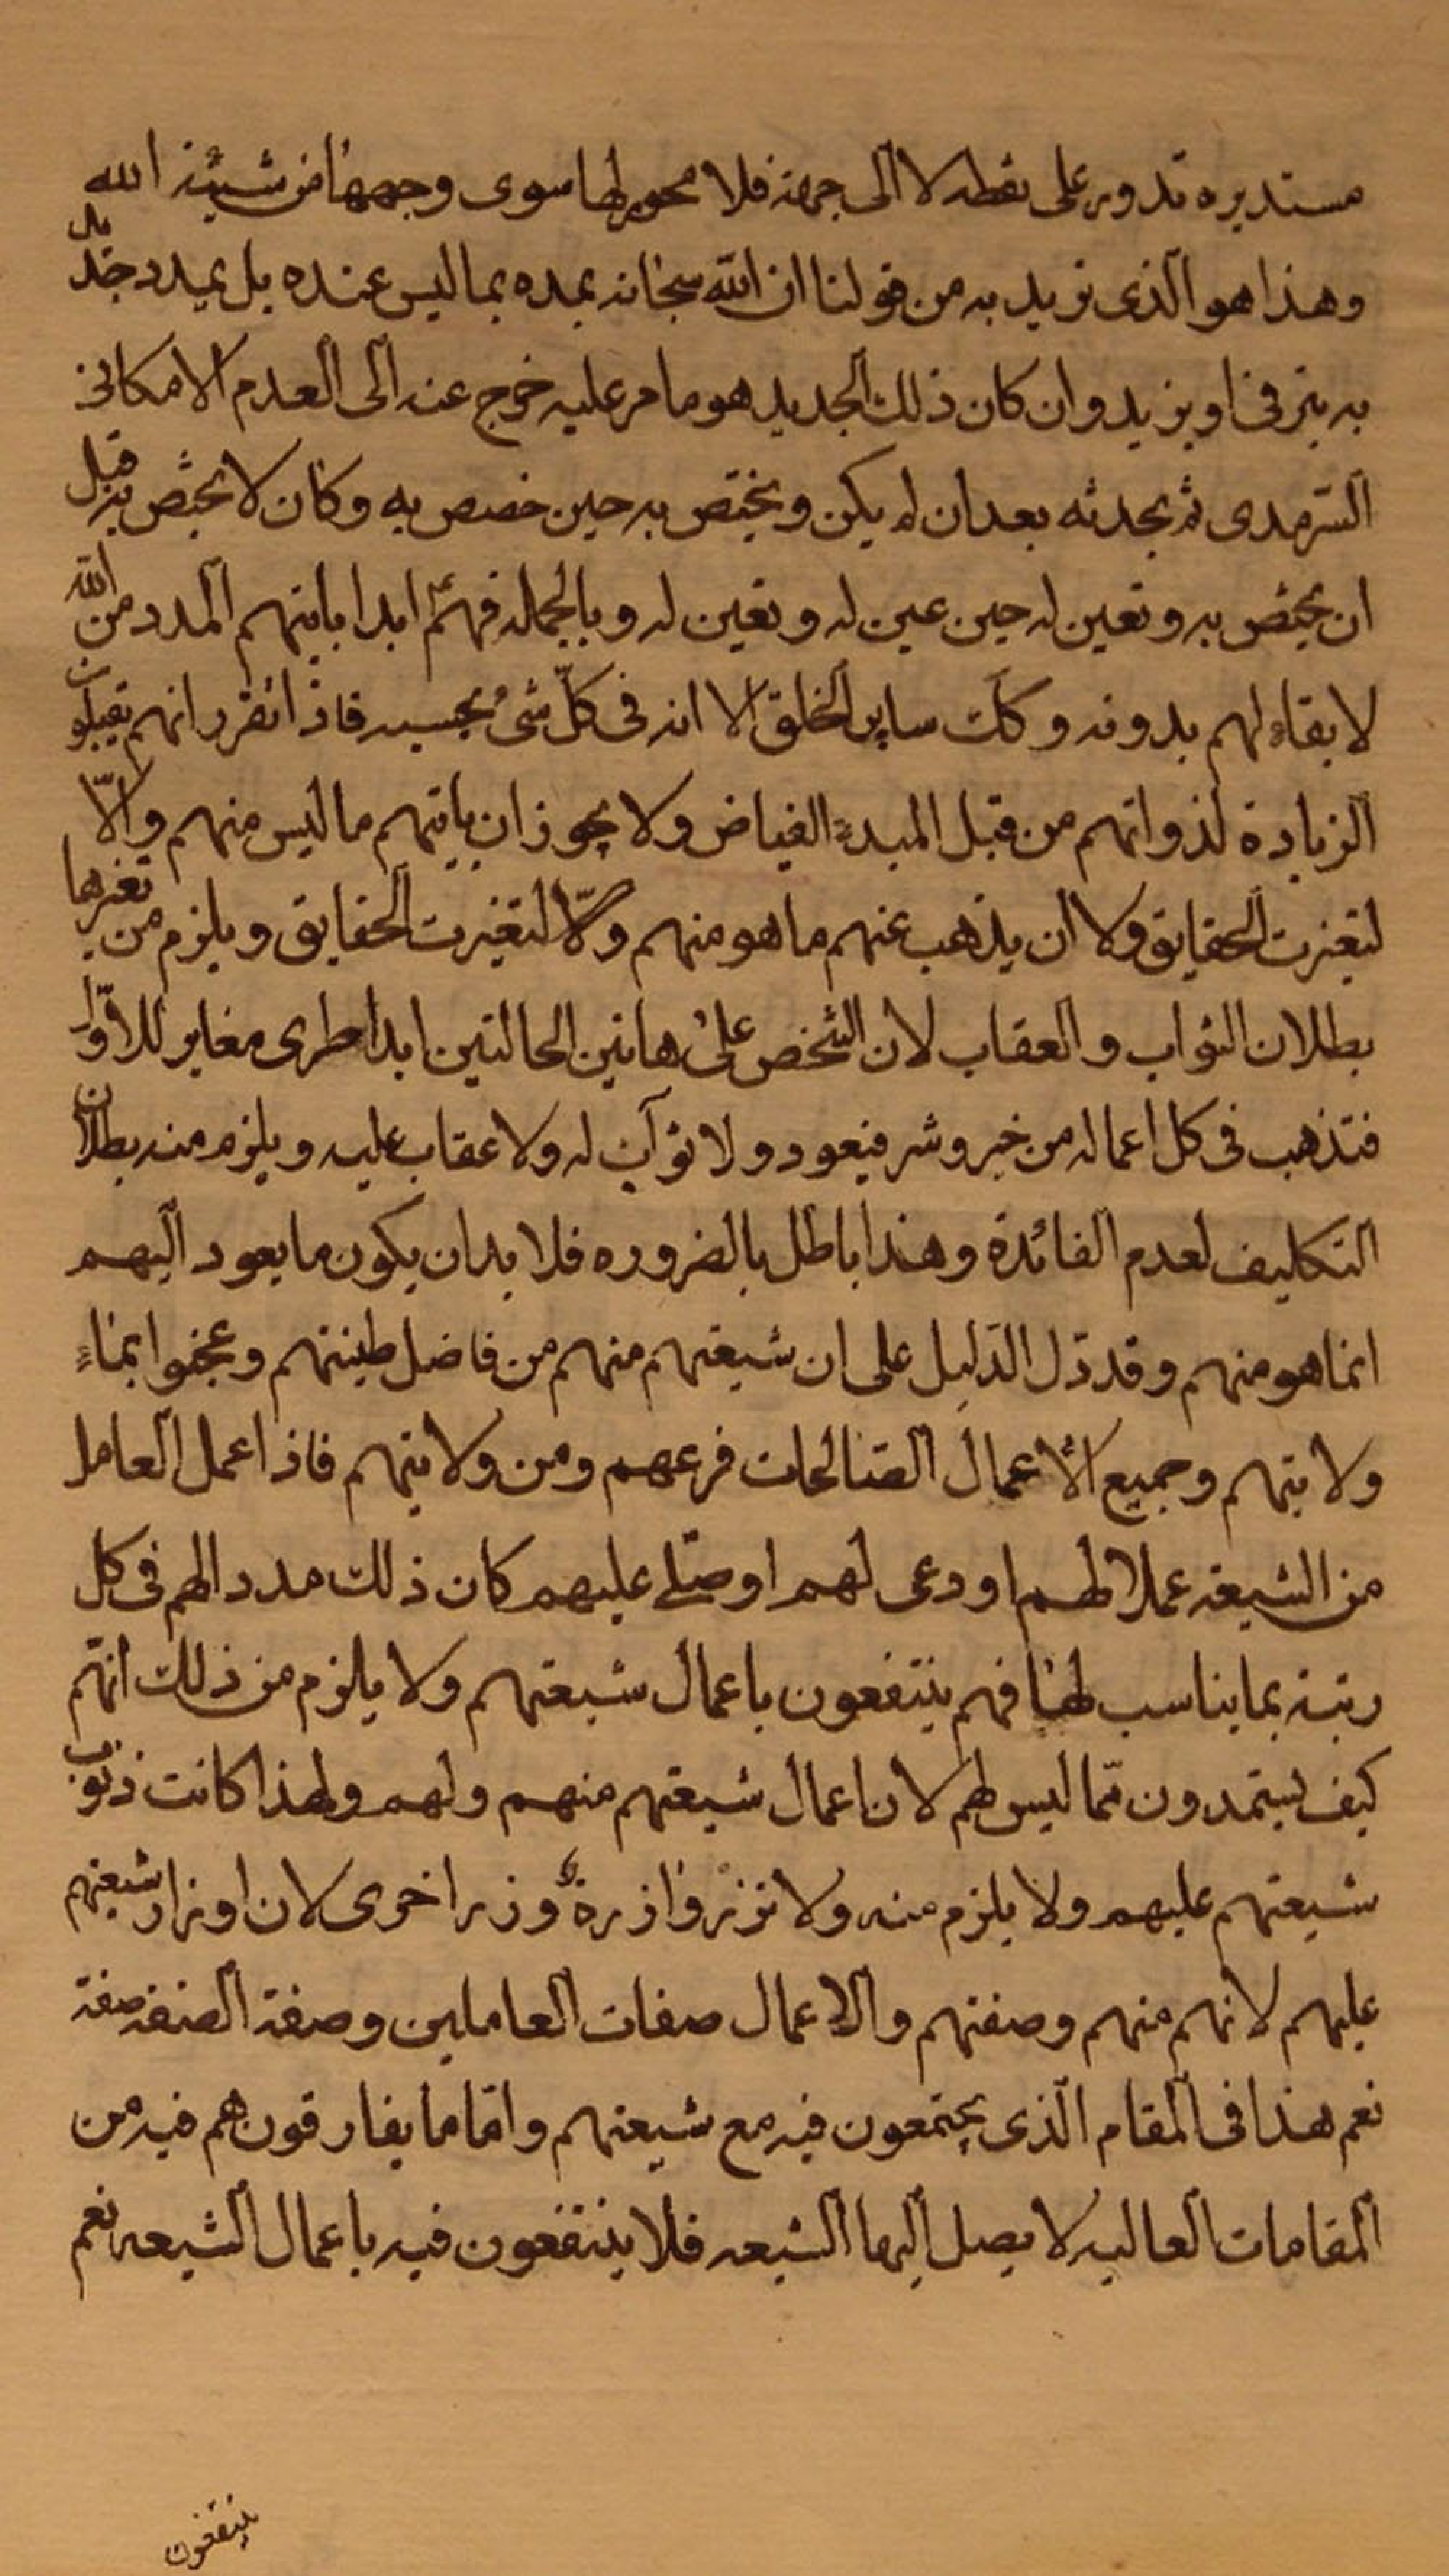 مستديره تدور على نقطه لا الى جهة فلا محور لها سوى وجهها من مشيئة الله
وهذا هو الذى نريد به من قولنا ان الله سبحانه يمده بما ليس عنده بل يمدد جديد
به يترقى او يزيد وان كان ذلك الجديد هو ما مر عليه خرج عنه الى العدم الامكانى
السرمدى ثم يحدثه بعد ان لم يكن ويختص به حين خصص به وكان لا يختص به قبل
ان يختص به وتعين له حين عين له وتعين له وبالجمله فهم ابدا ياتيهم المدد من الله
لا بقاء لهم بدونه وكك ساير الخلق الا انه فى كل شئ بحسبه فاذا تقرر انهم يقبلون
الزيادة لذواتهم من قبل المبدء الفياض ولا يجوز ان ياتيهم ما ليس منهم والا
لتغيرت الحقايق ولا ان يذهب عنهم ما هو منهم والا لتغيرت الحقايق ويلزم من تغيرها
بطلان الثواب والعقاب لان الشخص على هاتين الحالتين ابدا طرى مغاير للاول
فتذهب فى كل اعماله من خير وشر فيعود ولا ثواب له ولا عقاب عليه ويلزم منه بطلان
التكليف لعدم الفائدة وهذا باطل بالضروره فلا بد ان يكون ما يعود اليهم
انما هو منهم وقد دل الدليل على ان شيعتهم منهم من فاضل طينتهم وعجنوا بماء
ولايتهم وجميع الاعمال الصالحات فرعهم ومن ولايتهم فاذا عمل العامل
من الشيعة عملا لهم او دعى لهم او صلى عليهم كان ذلك مددا لهم فى كل
رتبة بما يناسب لها فهم ينتفعون باعمال شيعتهم ولا يلزم من ذلك انهم
كيف يستمدون مما ليس لهم لان اعمال شيعتهم منهم ولهم ولهذا كانت ذنوب
شيعتهم عليهم ولا يلزم منه ولا تزر وازرة وزر اخرى لان اوزار شيعتهم
عليهم لانهم منهم وصفتهم والاعمال صفات العاملين وصفة الصفة صفة
نعم هذا فى المقام الذى يجتمعون فيه مع شيعتهم واما ما يفارقون هم فيه من
المقامات العاليه لا يصل اليها الشيعه فلا ينتفعون فيه باعمال الشيعه نعم
ينتفعون